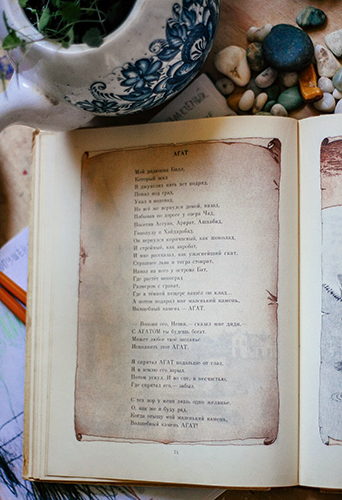 АГАТ
Мой дядюшка Биха,
Который жил
В джунглях пять лет подряд,
Попал под град,
Упал в водопад,
Но всё же вернулся домой, назад,
Побывав по дороге у озера Чад,
Посетив Ассуан, Арарат, Ашхабад,
Гонолулу и Хайдарабад.
Он вернулся коричневый, как шоколад,
И стройный, как акробат.
И мне рассказал, как ужаснейший скат,
Страшнее льва и тигра стократ,
Напал на него у острова Бат,
Где растёт виноград
Размером с гранат,
Где в тёмной пещере нашёл он клад...
А потом подарил мне маленький камень,
Волшебный камень — АГАТ.
— Возьми его, Ненни, — сказал мне дядя, —
С АГАТОМ ты будешь богат.
Может любое твоё желанье
Исполнить этот АГАТ.
Я спрятал АГАТ подальше от глаз,
Я в землю его зарыл.
Потом уснул. И во сне, к несчастью,
Где спрятал его, — забыл.
С тех пор у меня лишь одно желанье.
О, как же я буду рад,
Когда отыщу мой маленький камень,
Волшебный камень АГАТ!